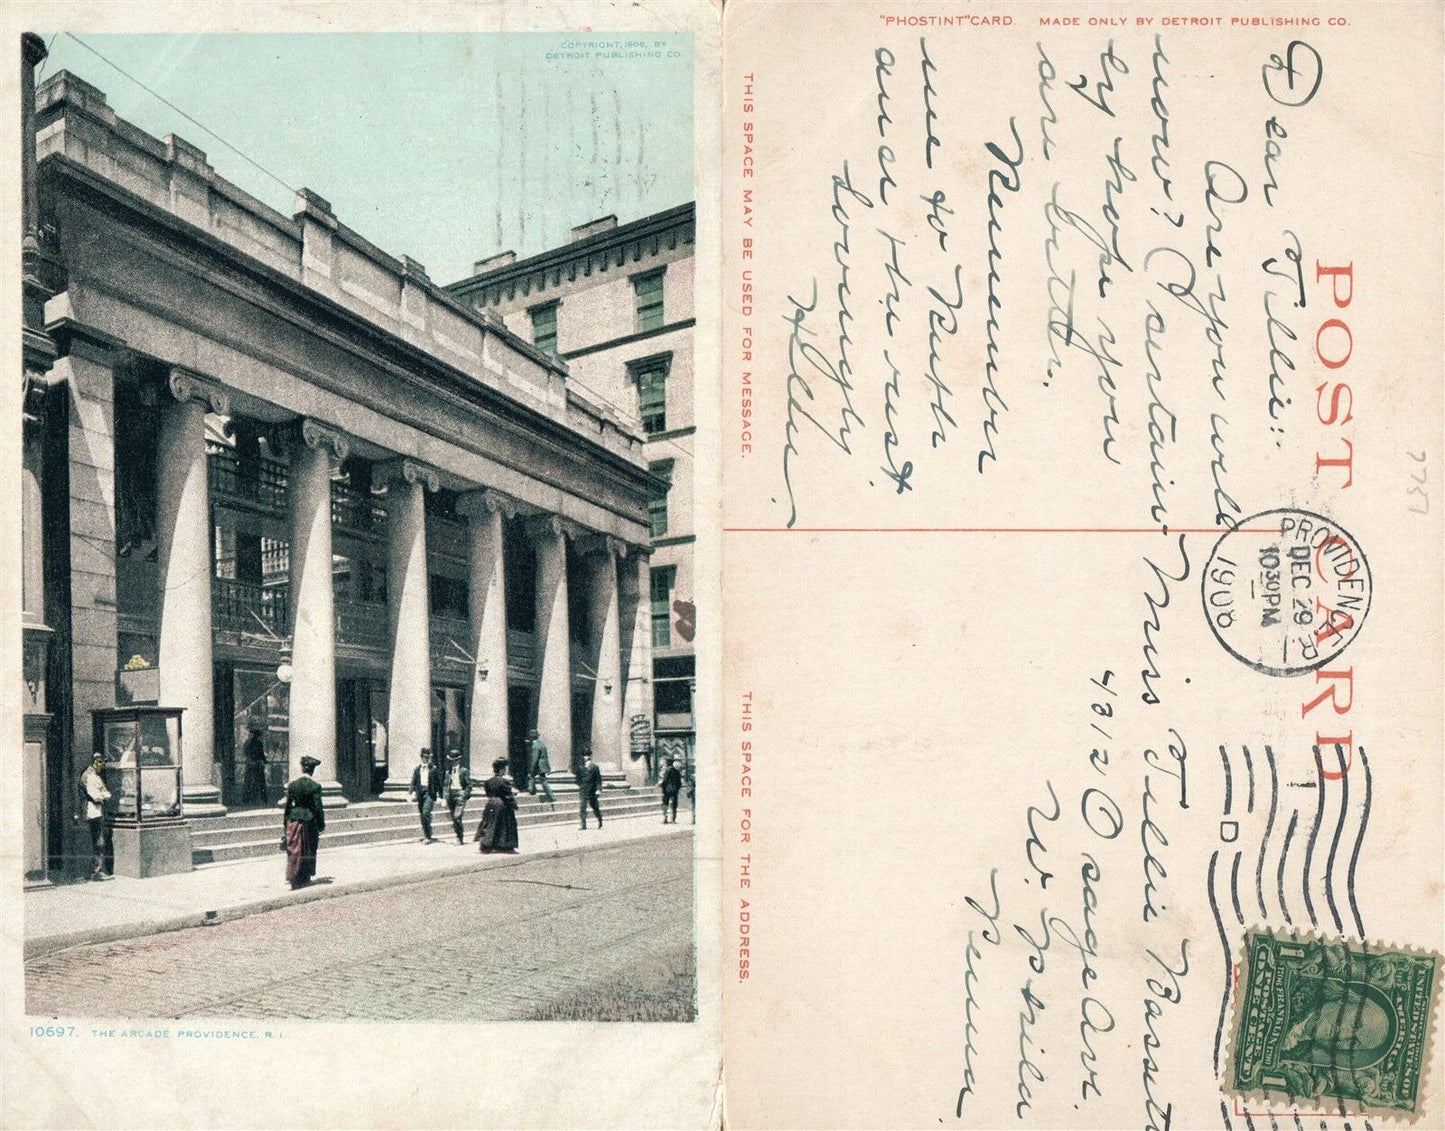 COPYRIGHT, 1906, BY
DETROIT PUBLISHING CO.
10697. THE ARCADE, PROVIDENCE, R. I.
"PHOSTINT" CARD. MADE ONLY BY DETROIT PUBLISHING CO.
POST CARD
THIS SPACE MAY BE USED FOR MESSAGE.
THIS SPACE FOR THE ADDRESS.
Dear Tillie:-
Are you well
now? I certainly hope you
are better.
Remember
me to Ruth
and the rest.
Lovingly
Helen.
Miss Tillie Bassett
4312 Osage Ave.
W. Phila
Penna.
PROVIDENCE, R.I.
DEC 29
10 30 PM
1908
D
7757
UNITED STATES OF AMERICA
SERIES 1902
ONE 1 CENT 1